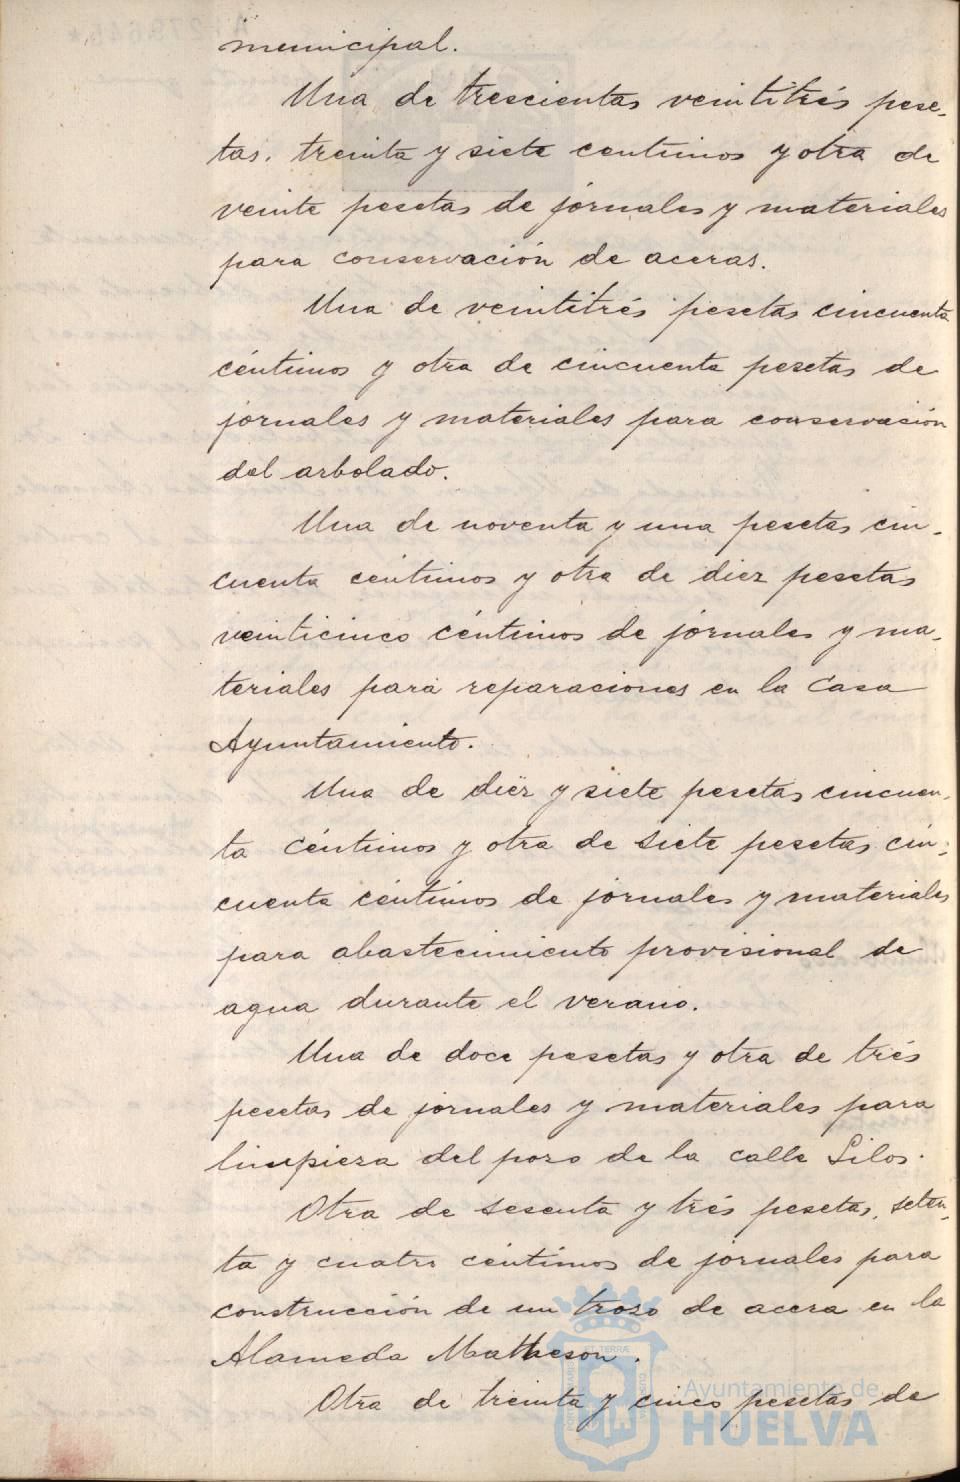 municipal.
Una de trescientas veintitrés pese-
tas, treinta y siete centimos y otra de
veinte pesetas de jornales y materiales
para conservación de aceras.
Una de veintitrés pesetas cincuenta
céntimos y otra de cincuenta pesetas de
jornales y materiales para conservación
del arbolado.
Una de noventa y una pesetas cin-
cuenta centimos y otra de diez pesetas
veinticinco céntimos de jornales y ma-
teriales para reparaciones en la Casa
Ayuntamiento.
Una de diez y siete pesetas cincuen-
ta céntimos y otra de siete pesetas cin-
cuenta céntimos de jornales y materiales
para abastecimiento provisional de
agua durante el verano.
Una de doce pesetas y otra de trés
pesetas de jornales y materiales para
limpieza del pozo de la calle Silos.
Otra de sesenta y trés pesetas, seten-
ta y cuatro céntimos de jornales para
construcción de un trozo de acera en la
Alameda Matheson.
Otra de treinta y cinco pesetas de
Ayuntamiento de
HUELVA